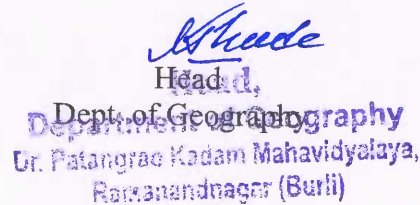 Head
Head,
Dept. of Geography
Department of Geography
Dr. Patangrao Kadam Mahavidyalaya,
Ramanandnagar (Burli)